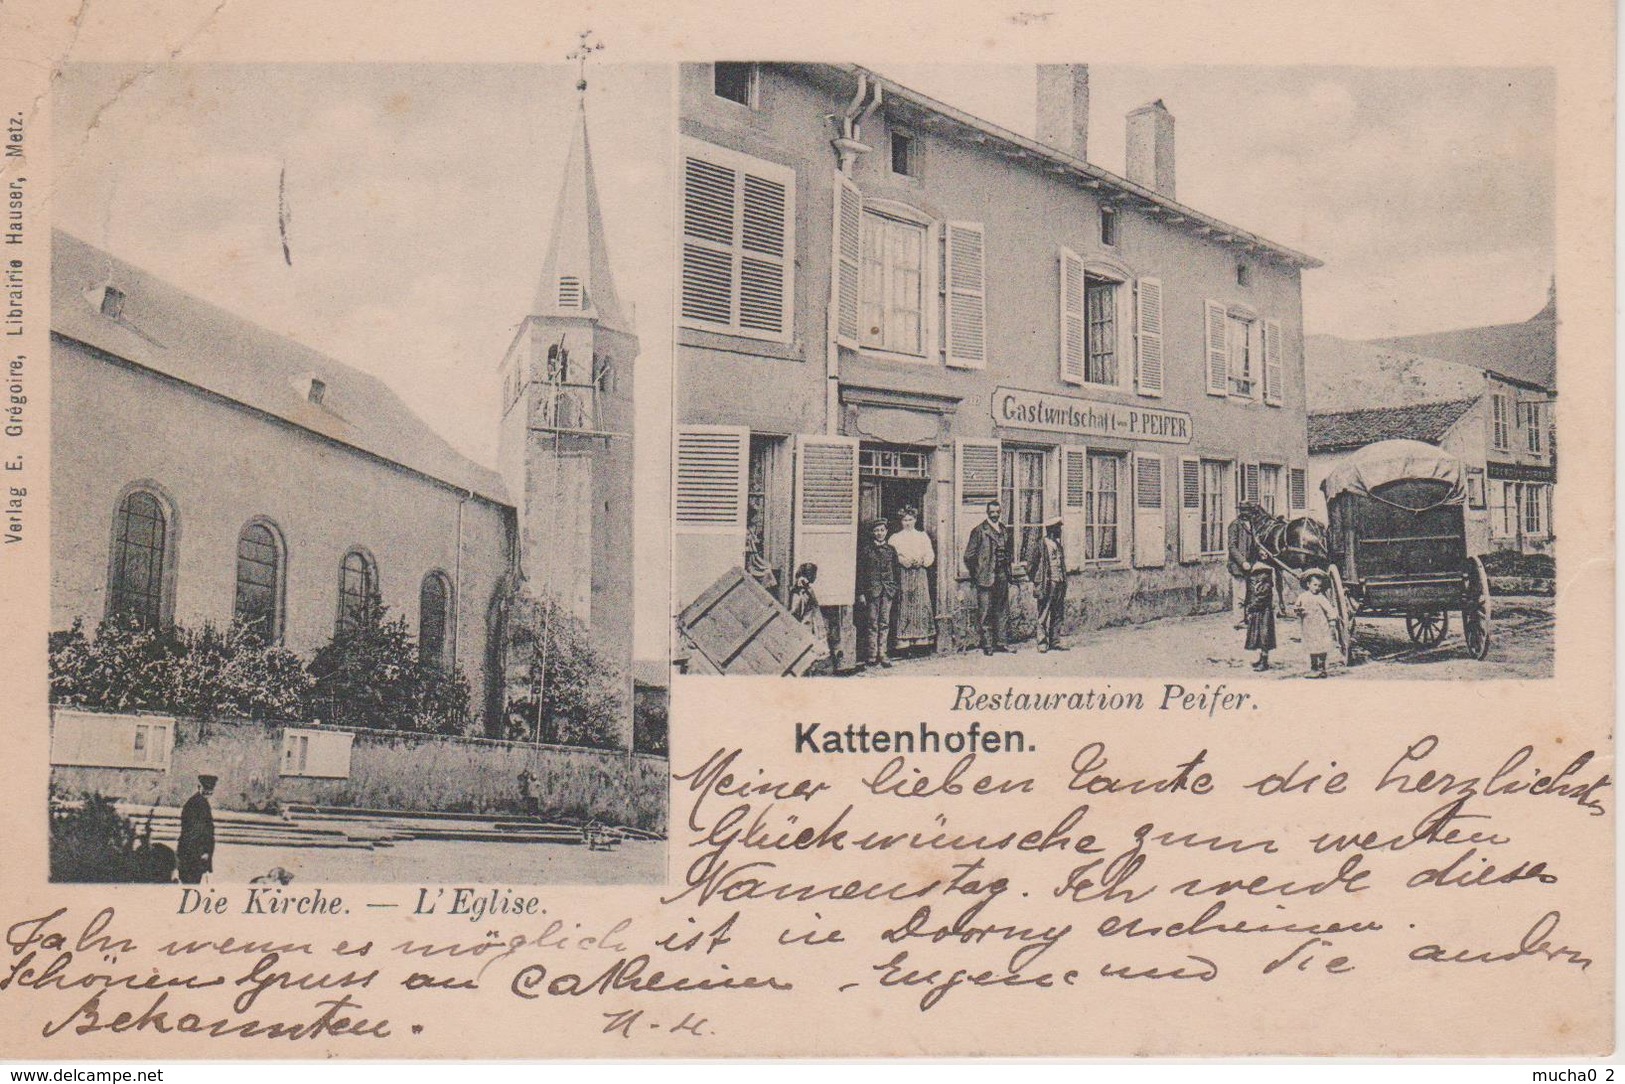 Verlag E. Grégoire, Librairie Hauser, Metz.
Gastwirtschaft von P. PEIFER
Restauration Peifer.
Kattenhofen.
Die Kirche. — L'Eglise.
Meiner lieben Tante die herzlichsten
Glückwünsche zum werten
Namenstag. Ich werde dieses
Jahr wenn es möglich ist in erscheinen.
Schönen Gruss an Catherine - Eugene und die andern
Bekannten. N-H.
www.delcampe.net
mucha0 2